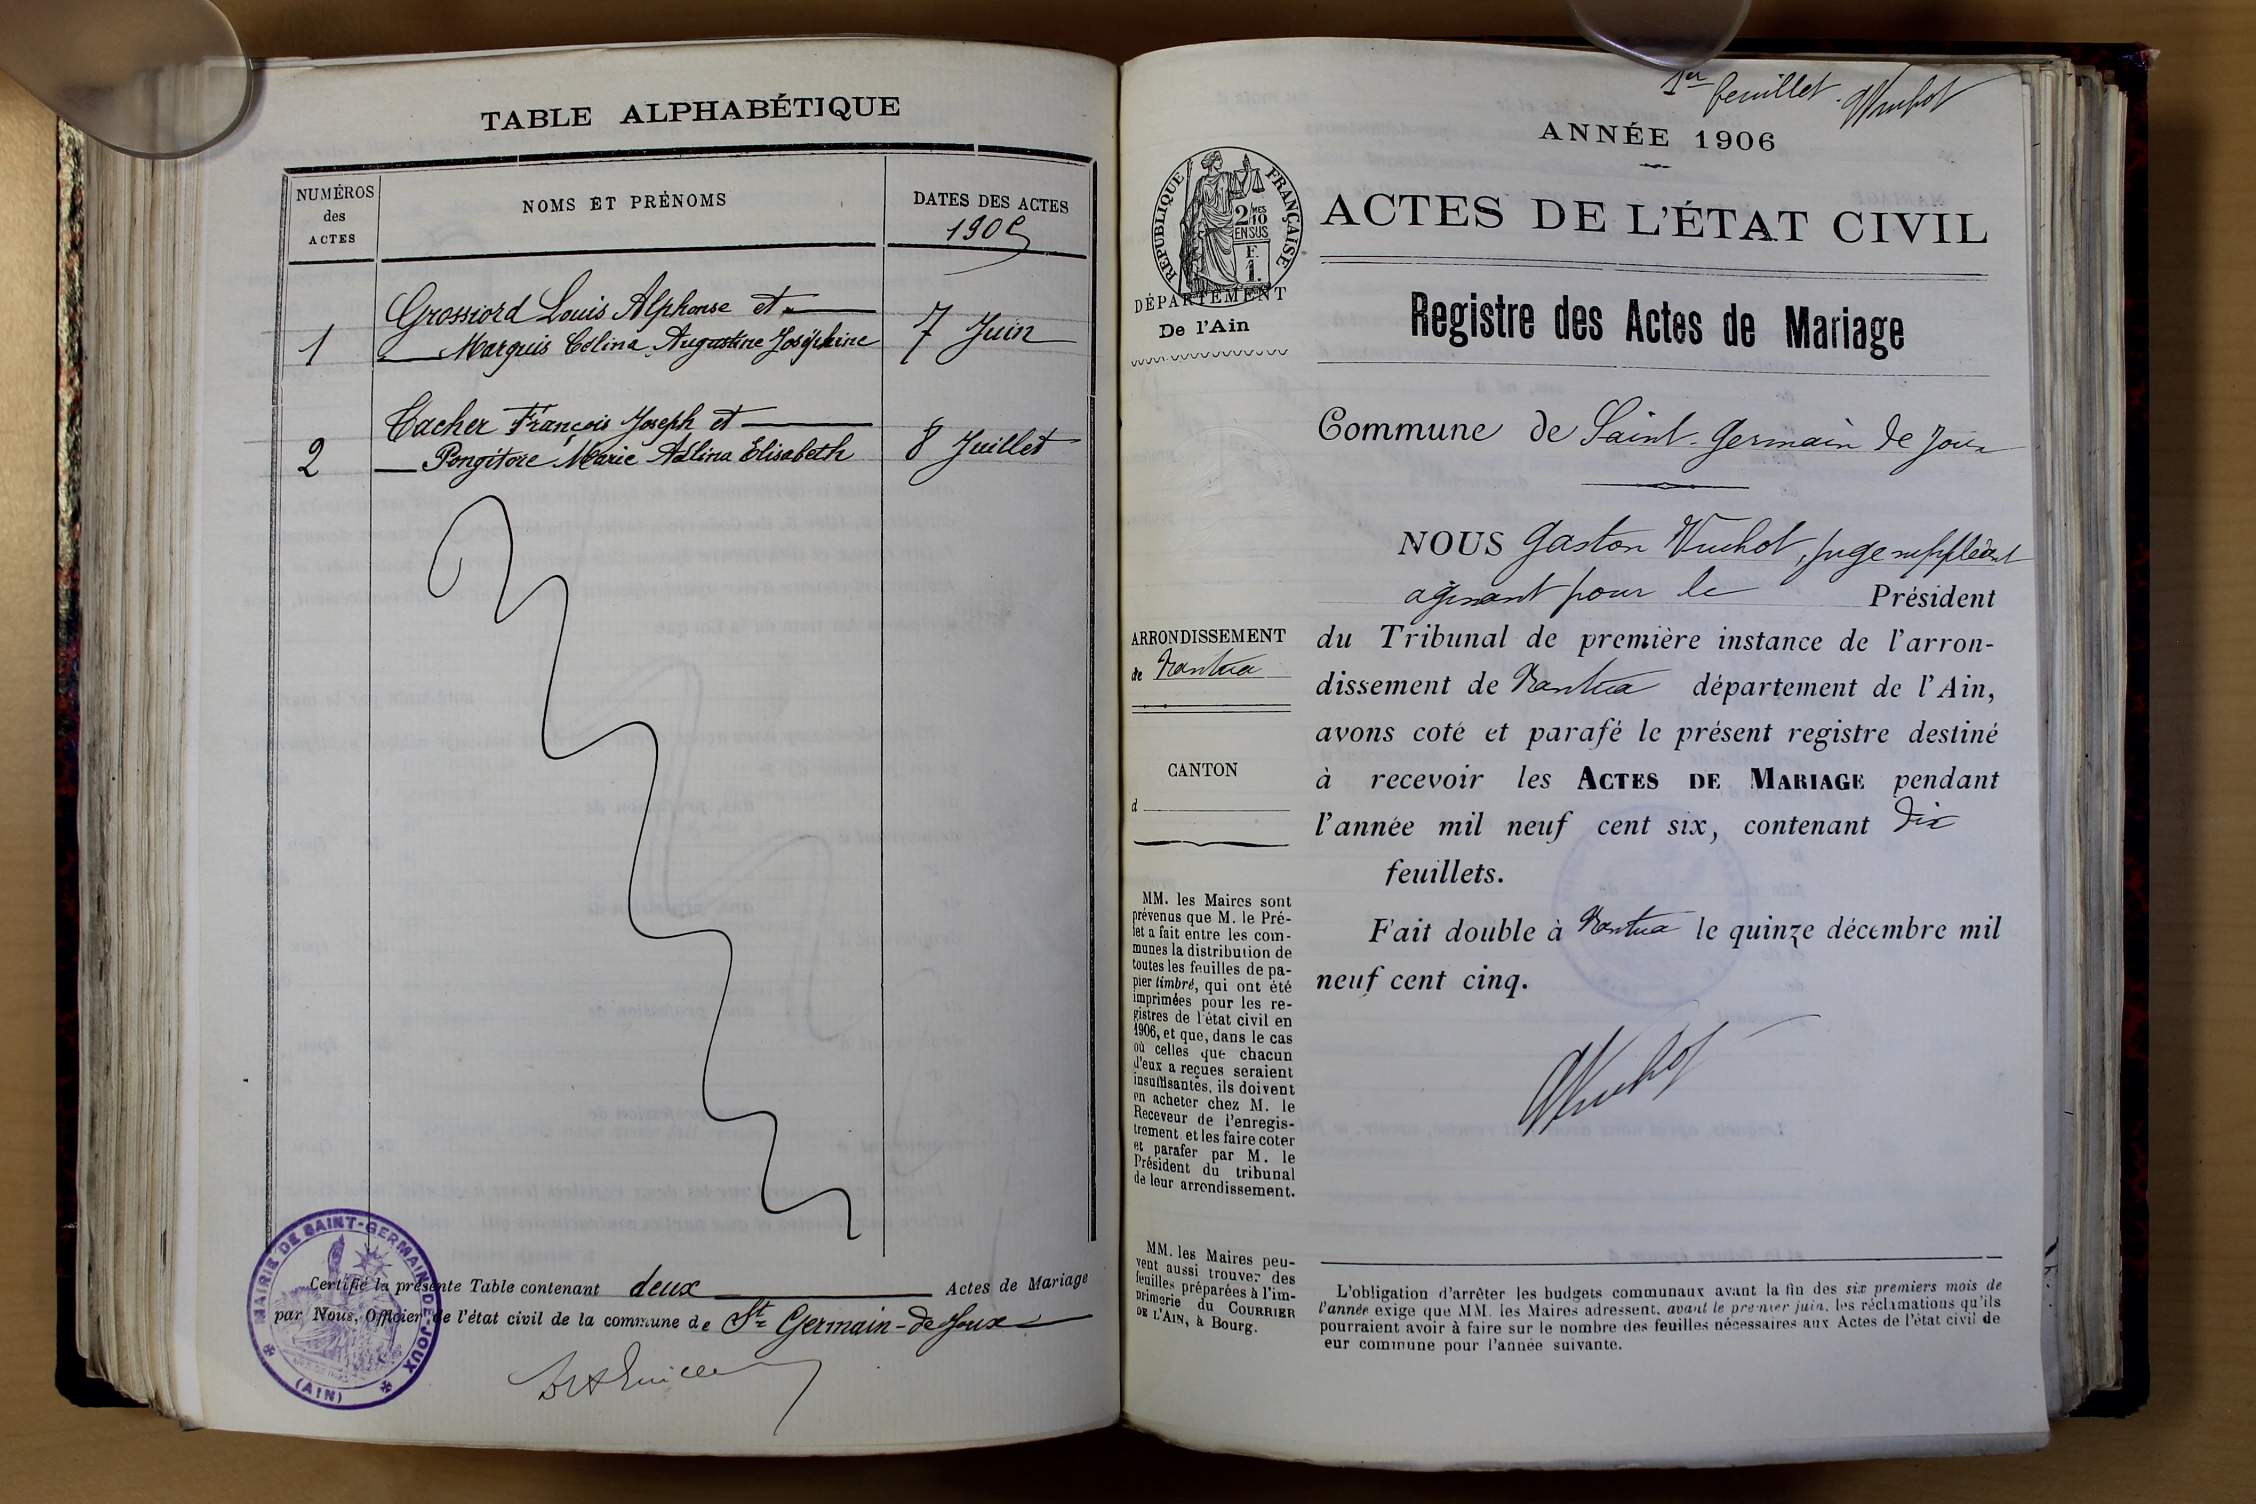 TABLE ALPHABÉTIQUE
NUMÉROS
des
ACTES
NOMS ET PRÉNOMS
DATES DES ACTES
1905
1
Grossiord Louis Alphonse et
Marquis Célina Augustine Joséphine
7 Juin
2
Tacher François Joseph et
Pongitore Marie Adlina Elisabeth
8 Juillet
Certifié la présente Table contenant deux Actes de Mariage
par Nous, Officier de l'état civil de la commune de St Germain-de-Joux
MAIRIE DE SAINT-GERMAIN-DE-JOUX
(AIN)
1er feuillet. Vuchot
ANNÉE 1906
RÉPUBLIQUE FRANÇAISE
2/10MES
EN SUS
F.
1.
ACTES DE L'ÉTAT CIVIL
DÉPARTEMENT
De l'Ain
Registre des Actes de Mariage
Commune de Saint-Germain de Joux
NOUS Gaston Vuchot, juge suppléant
agissant pour le Président
du Tribunal de première instance de l'arron-
dissement de Nantua département de l'Ain,
avons coté et parafé le présent registre destiné
à recevoir les ACTES DE MARIAGE pendant
l'année mil neuf cent six, contenant dix
feuillets.
Fait double à Nantua le quinze décembre mil
neuf cent cinq.
Vuchot
ARRONDISSEMENT
de Nantua
CANTON
d
MM. les Maires sont
prévenus que M. le Pré-
fet a fait entre les com-
munes la distribution de
toutes les feuilles de pa-
pier timbré, qui ont été
imprimées pour les re-
gistres de l'état civil en
1906, et que, dans le cas
où celles que chacun
d'eux a reçues seraient
insuffisantes, ils doivent
en acheter chez M. le
Receveur de l'enregis-
trement et les faire coter
et parafer par M. le
Président du tribunal
de leur arrondissement.
MM. les Maires peu-
vent aussi trouver des
feuilles préparées à l'im-
primerie du COURRIER
DE L'AIN, à Bourg.
L'obligation d'arrêter les budgets communaux avant la fin des six premiers mois de
l'année exige que MM. les Maires adressent, avant le premier juin, les réclamations qu'ils
pourraient avoir à faire sur le nombre des feuilles nécessaires aux Actes de l'état civil de
eur commune pour l'année suivante.